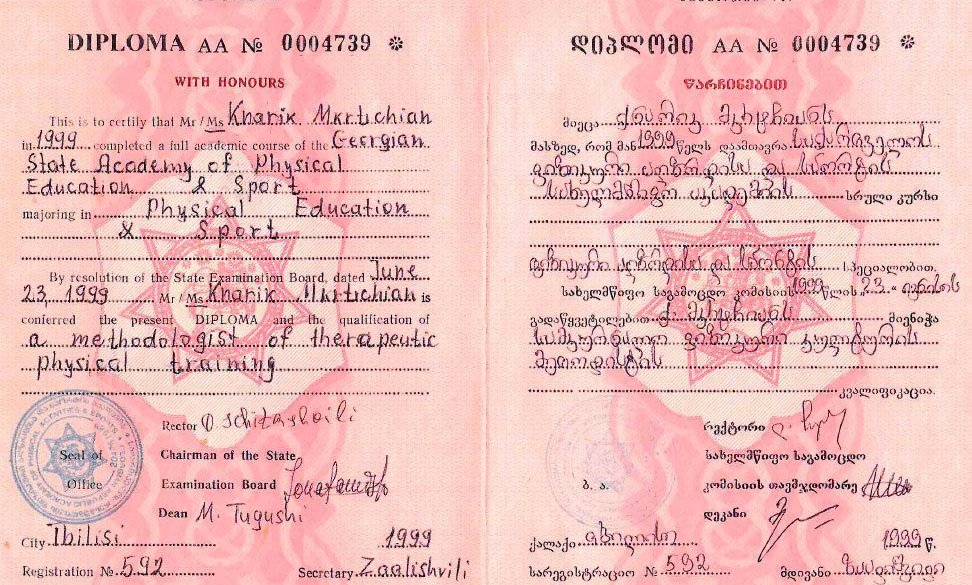 DIPLOMA AA № 0004739 ※
WITH HONOURS
This is to certify that Mr / Ms Knarik Mkrtichian
in 1999 completed a full academic course of the Georgian
State Academy of Physical
Education & Sport
majoring in Physical Education
& Sport
By resolution of the State Examination Board, dated June
23, 1999 Mr / Ms Knarik Mkrtichian is
conferred the present DIPLOMA and the qualification of
a methodologist of therapeutic
physical training
Rector
Seal of
Office
Chairman of the State
Examination Board
Dean M. Tugushi
City Tbilisi 1999
Registration № 592 Secretary Zaalishvili
დიპლომი AA № 0004739 ※
წარჩინებით
მიეცა ქნარიკ მკრტიჩიანს
მასზედ, რომ მან 1999 წელს დაამთავრა საქართველოს
ფიზიკური აღზრდისა და სპორტის
სახელმწიფო აკადემიის სრული კურსი
ფიზიკური აღზრდისა და სპორტის სპეციალობით.
სახელმწიფო საგამოცდო კომისიის 1999 წლის „23" ივნისის
გადაწყვეტილებით ქ. მკრტიჩიანს მიენიჭა
სამკურნალო ფიზიკური კულტურის
მეთოდისტის
კვალიფიკაცია.
რექტორი
სახელმწიფო საგამოცდო
ბ. ა. კომისიის თავმჯდომარე
დეკანი
ქალაქი თბილისი 1999 წ.
სარეგისტრაციო № 592 მდივანი